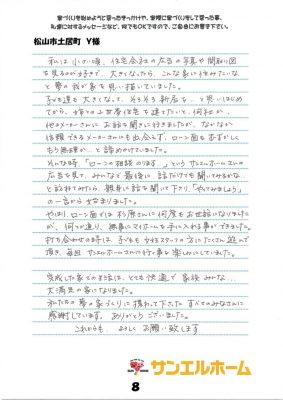 家づくりを始めようと思ったきっかけや、実際に家づくりをして思った事、
私達に対するメッセージなど、何でもOKですので、ご自由にお書き下さい。
松山市土居町 Y様
私は小さい頃、住宅会社の広告の写真や間取り図
を見るのが好きで、大きくなったら、こんな家に住みたいな
と夢の我が家を思い描いていました。
子ども達も大きくなって、そろそろ新居を、と思いはじめ
てから、
他のメーカーさんにお話を聞きに行きましたが、なかなか
信頼できるメーカーさんにも出会えず、ローン面もむずかしく
もう無理か…と諦めかけていました。
そんな時「ローンの相談のります」というサンエルホームさんの
広告を見て、みんなで最後に、話だけでも聞いてみるかな
と訪ねてみたら、親身に話を聞いて下さり「やってみましょう」
の一言から始まりました。
やはり、ローン面では杉原さんに何度もお世話になりました
が、何とか通り、無事にマイホームを手に入れる事ができました。
打ち合わせの時は、子どもも女性スタッフの方にたくさん遊んで
頂き、毎回サンエルホームさんに行く事を楽しみにしていました。
完成した家での生活は、とても快適で家族みんな…
大満足の家になりました。
私たちの夢の家づくりに携わって下さったすべてのみなさんに
感謝しています。ありがとうございました。
これからも、よろしくお願い致します
サンエルホーム
8